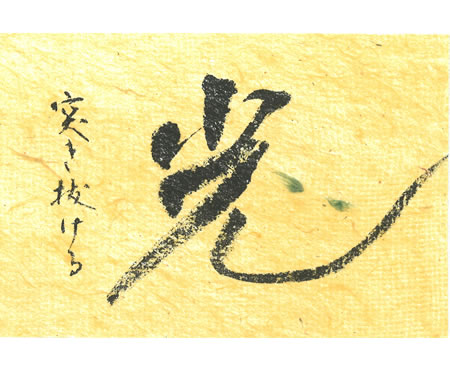 突き抜ける
光